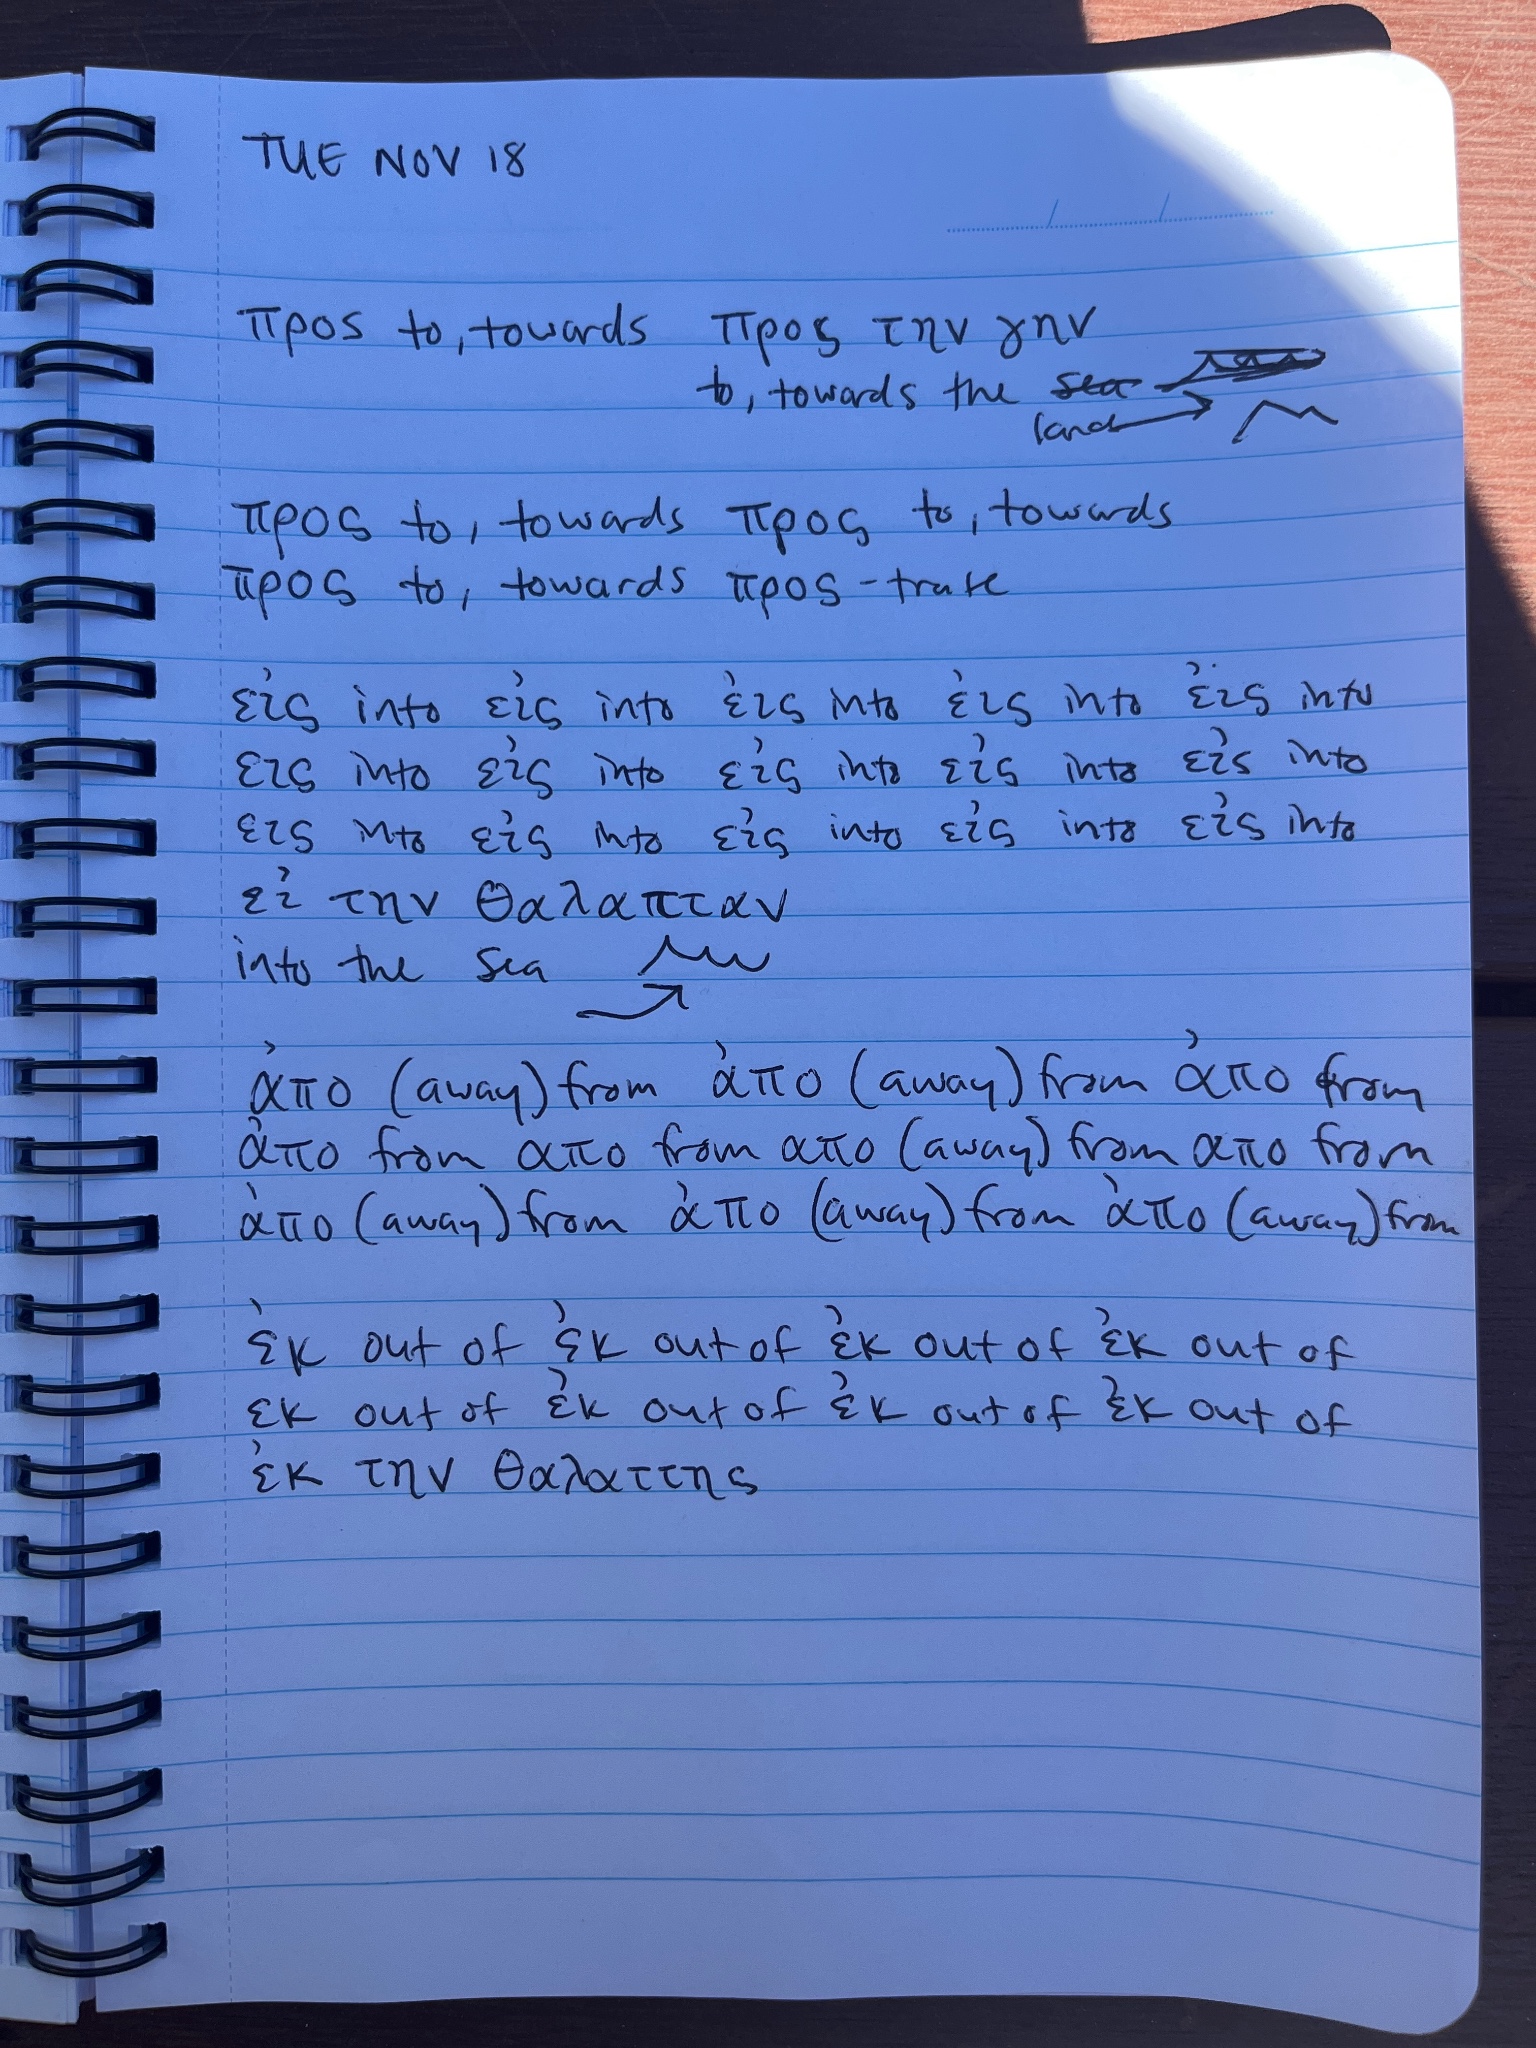 TUE NOV 18
προς to, towards προς την γην
to, towards the sea
land
προς to, towards προς to, towards
προς to, towards προς-trate
εἰς into εἰς into ἐις into ἐις into ἐις into
εις into εἰς into εἰς into εἰς into εἰς into
εις into εἰς into εἰς into εἰς into εἰς into
εἰ την θαλαπταν
into the sea
ἀπο (away) from ἀπο (away) from ἀπο from
ἀπο from απο from απο (away) from απο from
ἀπο (away) from ἀπο (away) from ἀπο (away) from
ἐκ out of ἐκ out of ἐκ out of ἐκ out of
εκ out of ἐκ out of ἐκ out of ἐκ out of
ἐκ την θαλαττης